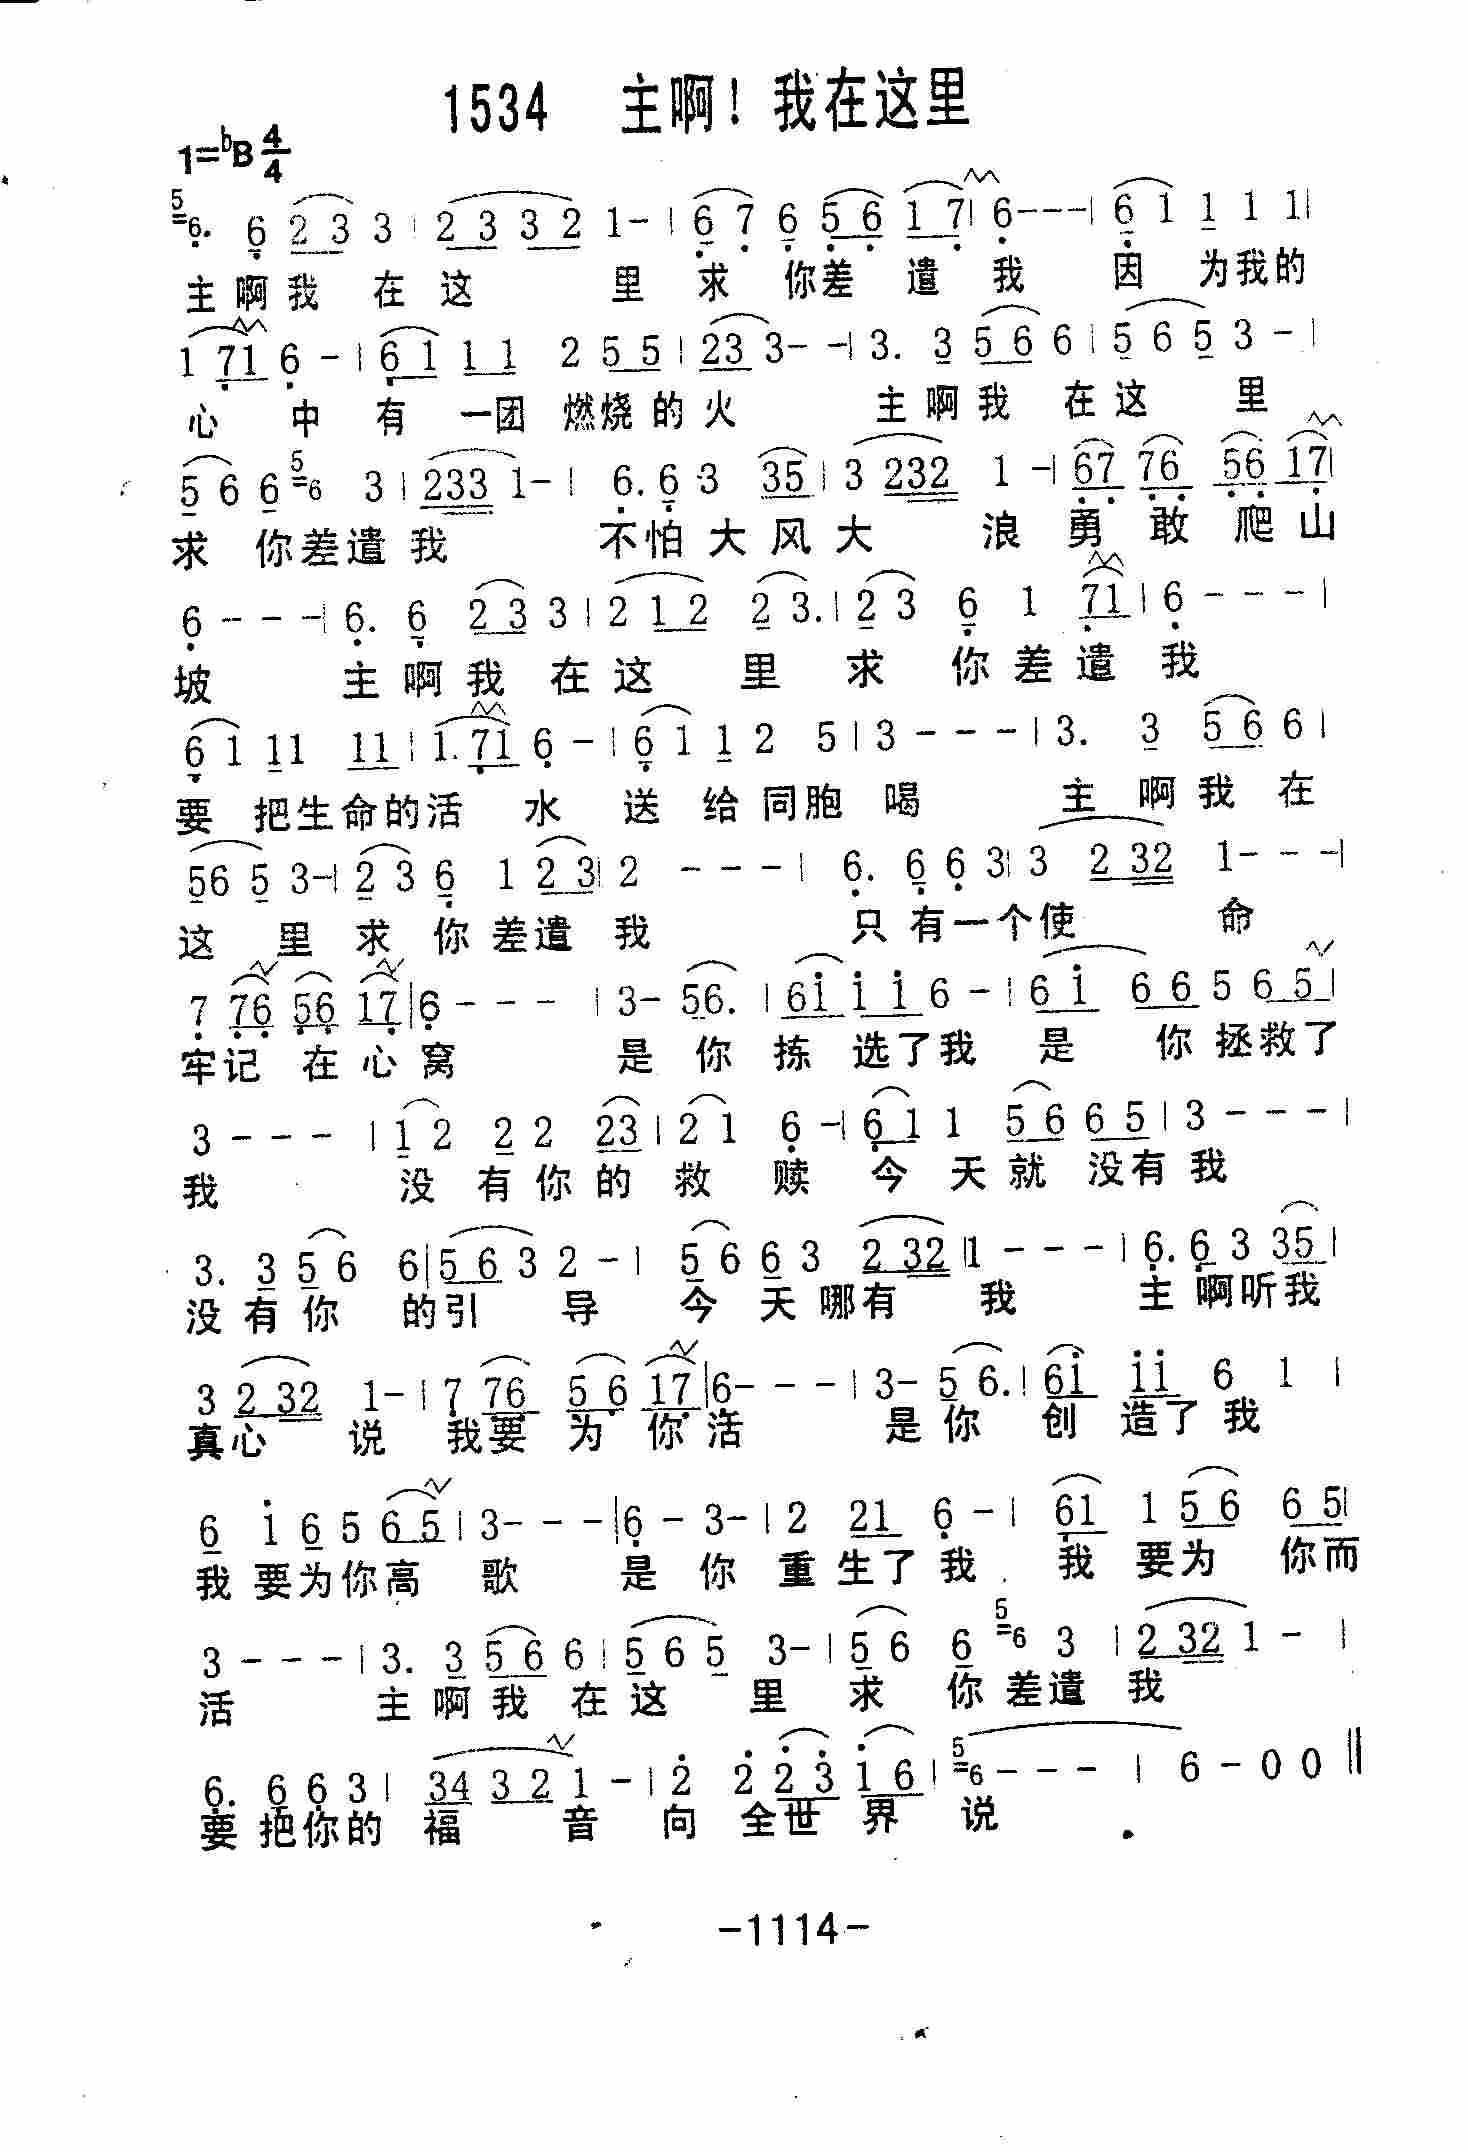 1534 主啊！我在这里
1=bB 4/4
5 6. 6 2 3 3 | 2 3 3 2 1- | 6 7 6 5 6 1 7 | 6--- | 6 1 1 1 1 |
主啊我 在这 里 求 你差 遣 我 因 为我的
1 71 6 - | 6 1 1 1 2 5 5 | 23 3- - | 3. 3 5 6 6 | 5 6 5 3 - |
心 中 有 一团 燃烧的火 主啊我 在这 里
5 6 6 5 6 3 | 233 1- | 6. 6 3 35 | 3 232 1 - | 67 76 56 17 |
求 你差遣我 不怕大风大 浪 勇 敢 爬山
6 - - - | 6. 6 2 3 3 | 2 1 2 2 3. | 2 3 6 1 71 | 6 - - - |
坡 主啊我 在这 里 求 你差遣 我
6 1 11 11 | 1. 71 6 - | 6 1 1 2 5 | 3 - - - | 3. 3 5 6 6 |
要 把生命的活 水 送 给同胞 喝 主 啊我 在
56 5 3- | 2 3 6 1 2 3 | 2 - - - | 6. 6 6 3 | 3 2 32 1- - - |
这 里 求 你差遣 我 只有一个使 命
7 76 56 17 | 6 - - - | 3- 56. | 61 1 1 6 - | 6 1 6 6 5 6 5 |
牢记 在心窝 是 你 拣 选了我 是 你拯救了
3 - - - | 1 2 2 2 23 | 2 1 6 - | 6 1 1 5 6 6 5 | 3 - - - |
我 没 有你的 救 赎 今 天就 没有我
3. 3 5 6 6 | 5 6 3 2 - | 5 6 6 3 2 32 | 1 - - - | 6. 6 3 35 |
没有你 的引 导 今 天哪有 我 主啊听我
3 2 32 1- | 7 76 5 6 17 | 6- - - | 3- 5 6. | 61 11 6 1 |
真心 说 我要 为 你活 是你 创 造了我
6 1 6 5 6 5 | 3- - - | 6 - 3- | 2 21 6 - | 61 1 5 6 6 5 |
我要为你高 歌 是 你 重生了我 我 要为 你而
3 - - - | 3. 3 5 6 6 | 5 6 5 3- | 5 6 6 5 6 3 | 2 32 1 - |
活 主啊我 在这 里 求 你差遣 我
6. 6 6 3 | 34 3 2 1 - | 2 2 2 3 1 6 | 5 6 - - - | 6 - 0 0 ‖
要把你的 福 音 向 全世界 说
-1114-